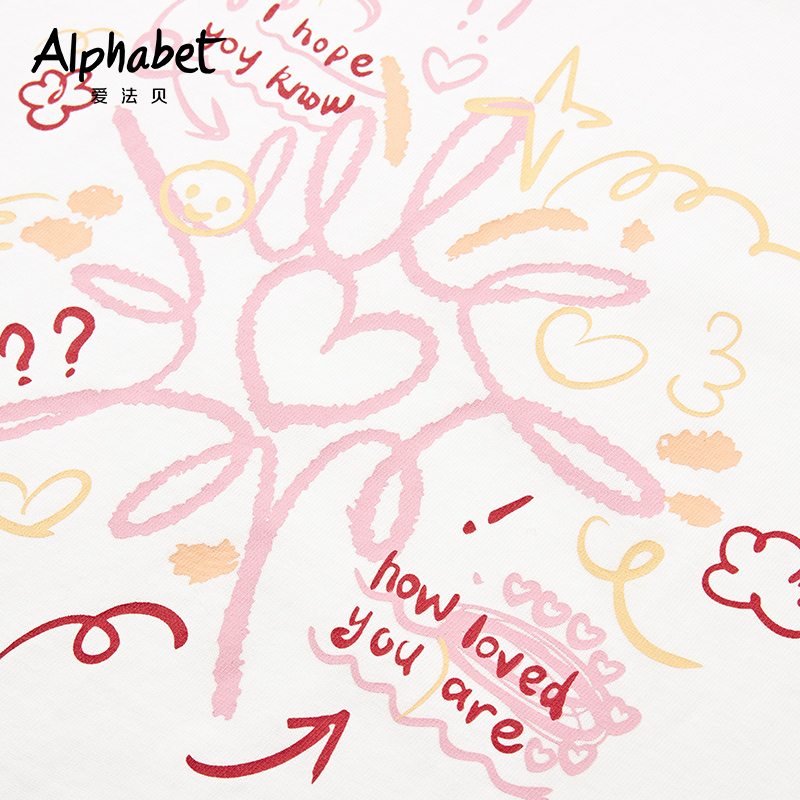 Alphabet
爱法贝
I hope
you know
??
how loved
you are